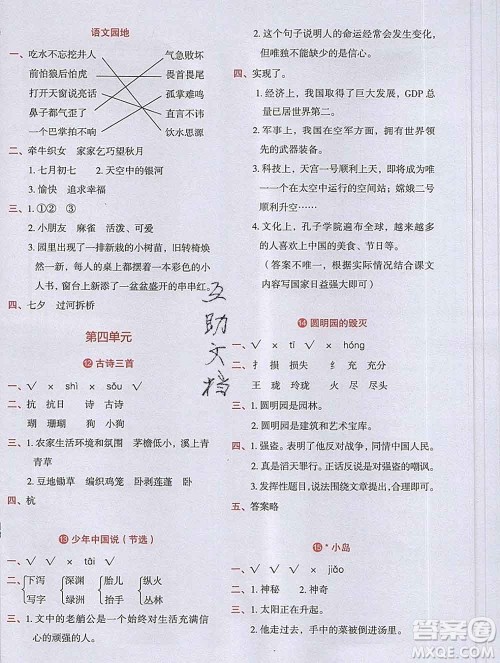 语文园地
一、吃水不忘挖井人 气急败坏
前怕狼后怕虎 畏首畏尾
打开天窗说亮话 孤掌难鸣
鼻子都气歪了 直言不讳
一个巴掌拍不响 饮水思源
二、牵牛织女 家家乞巧望秋月
1. 七月初七 2. 天空中的银河
3. 愉快 追求幸福
三、1. ①② ③
2. 小朋友 麻雀 活泼、可爱
3. 图书园里的一排新栽的小树苗,旧转椅焕然
一新,每人的身后都摆着一本彩色的小人
书,窗台上新添了一盆盆盛开的串串红。
四、七夕 过河拆桥
第四单元
12 古诗三首
一、√ × shì × sǒu √
二、抗 抗日 诗 古诗
瑚 珊瑚 狗 小狗
三、1. 农家生活环境和氛围 茅檐低小,溪上青
青草
2. 豆地锄草 编织鸡笼 卧剥莲蓬 卧
四、杭
13 少年中国说(节选)
一、√ √ × tāi √
二、下泻 深渊 胎儿 纵火
写字 绿洲 抬手 丛林
三、1. 文中的老艄公是一个始终对生活充满信
心的顽强的人。
2. 这个句子说明人的命运经常会发生变化,
但唯独不能缺少的是信心。
四、实现了。
1. 经济上,我国取得了巨大发展,GDP总
量已居世界第二。
2. 军事上,我国在空军方面,拥有世界领先
的武器装备。
3. 科技上,天宫一号顺利飞上天,将成为一
个在太空中运行的空间站;嫦娥二号
顺利升空……
4. 文化上,孔子学院遍布全球,越来越多
的人喜欢上中国的美食、节日等。
(答案不唯一,围绕实际情况结合课文
内容写国家日益强盛即可)
14 圆明园的毁灭
一、√ × tǐ √ × hóng
二、扌 损 损失 子 孤 孤单
王 珑 玲珑 火 烬 灰烬
三、1. 圆明园是公园。
2. 圆明园是建筑和艺术宝库。
四、1. 强盗。表明了他反对战争,同情中国人民。
2. 真是滔天罪行。正话反说,对强盗的嘲讽。
3. 发挥性题目,说说围绕文章提出,合理即可。
五、答案略
15*小岛
一、√ √ × jiǎo
二、1. 神秘 2. 神奇
三、1. 太阳正在升起。
2. 他走过去,手中的菜被倒进汤里。
互助文档
答案圈
MXQE.COM